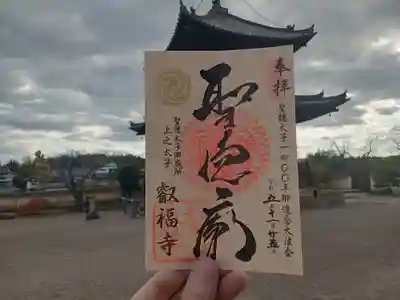 奉拝
聖徳太子一四〇〇年御遠忌大法会
令和五年十一月廿五日
聖霊殿
聖徳太子御廟所
上之太子
叡福寺